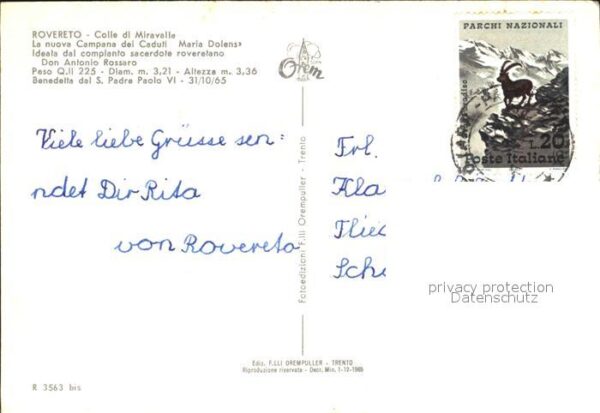 ROVERETO - Colle di Miravalle
La nuova Campana dei Caduti Maria Dolens
Ideata dal compianto sacerdote roveretano
Don Antonio Rossaro
Peso Q.li 225 - Diam. m. 3,21 - Altezza m. 3,36
Benedetta dal S. Padre Paolo VI - 31/10/65
Orem
PARCHI NAZIONALI
L.20
Poste Italiane
Viele liebe Grüsse sen:
ndet Dir Rita
von Rovereto
Fotoedizioni F.lli Orempuller - Trento
Frl.
privacy protection
Datenschutz
Ediz. F.LLI OREMPULLER - TRENTO
Riproduzione riservata - Decr. Min. 1-12-1965
R 3563 bis